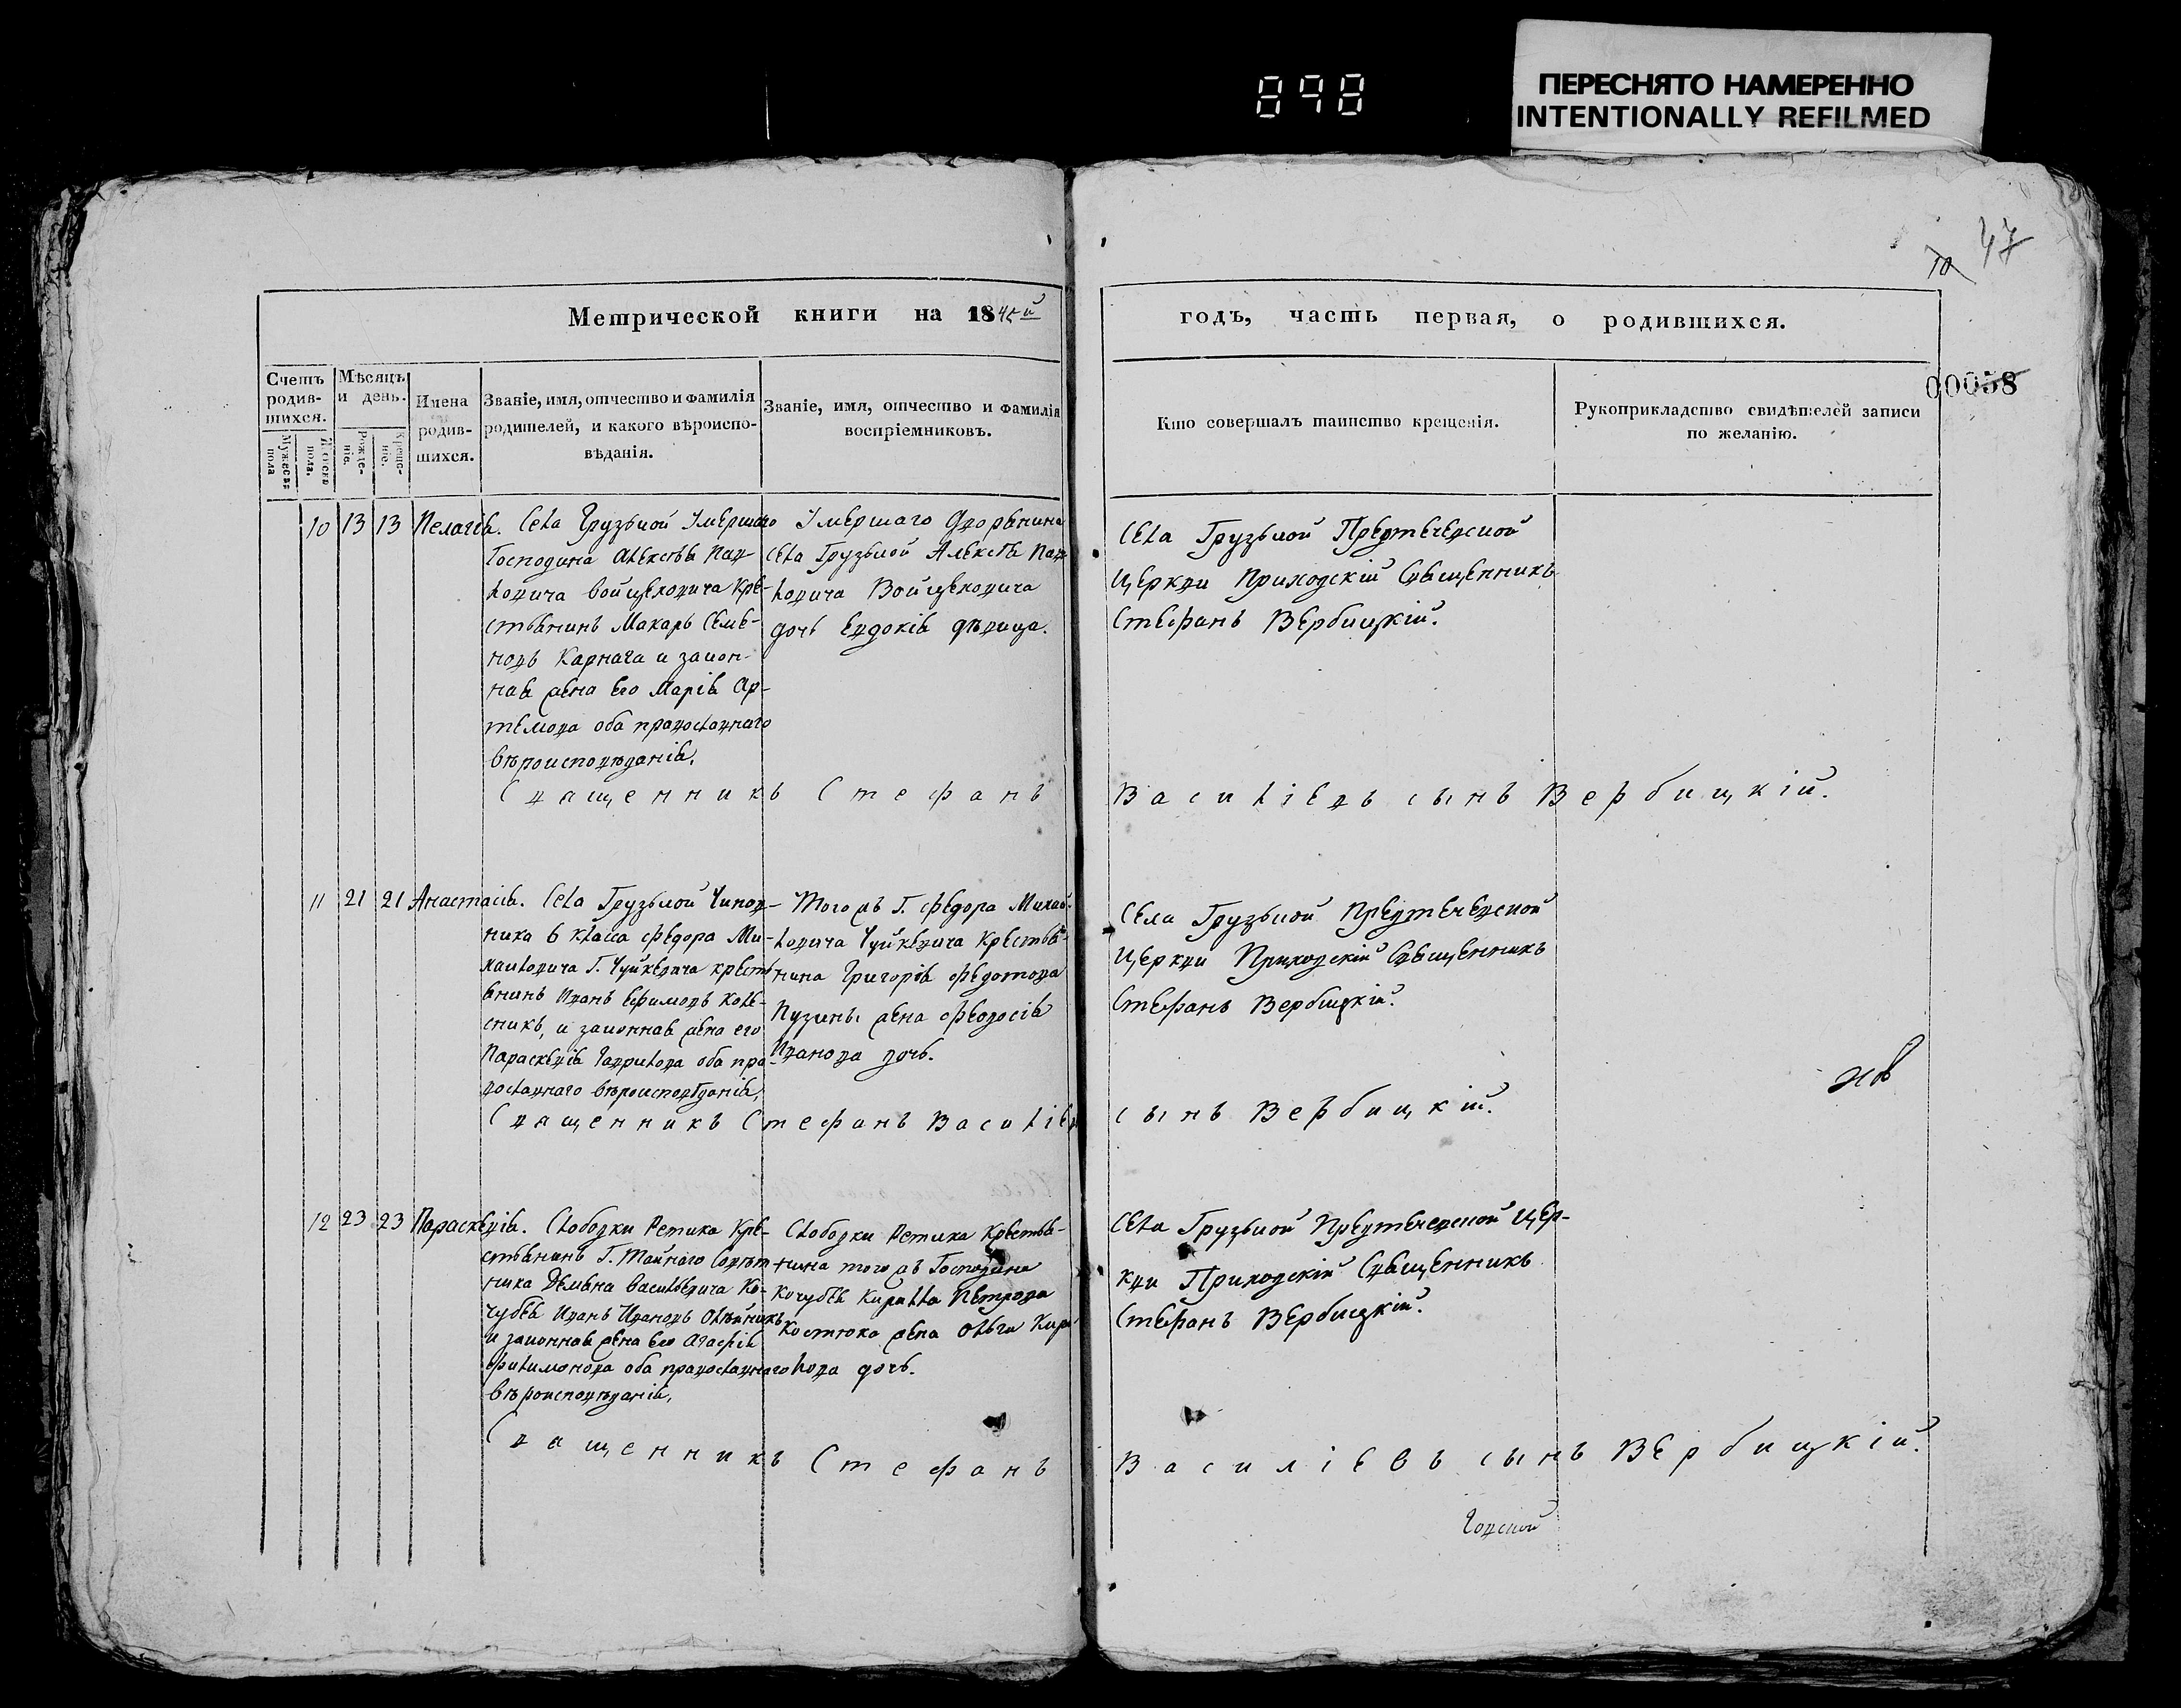 898
ПЕРЕСНЯТО НАМЕРЕННО
INTENTIONALLY REFILMED
47
10
00058
Метрической книги на 1845й
годъ, часть первая, о родившихся.
Счетъ родив-шихся.
Мужеска пола
Женска пола.
Мѣсяцъ и день.
Рожде-ніе.
Креще-ніе.
Имена родив-шихся.
Званіе, имя, отчество и фамилія
родителей, и какого вѣроиспо-
вѣданія.
Званіе, имя, отчество и фамилія
воспріемниковъ.
Кто совершалъ таинство крещенія.
Рукоприкладство свидѣтелей записи
по желанію.
10 13 13 Пелагія.
Села Грузьной Умершаго
Господина Алексѣя Пав-
ловича Войцеховича Кре-
стьянинъ Макарь Семе-
новъ Карнага и закон-
ная жена его Марія Ар-
темова оба православнаго
вѣроисповѣданія.
Умершаго Дворянина
Села Грузьной Алексѣя Пав
ловича Войцеховича
дочь Евдокія дѣвица.
Села Грузьной Предтечевской
Церкви Приходскій Священникъ
Стефанъ Вербицкій.
Священникъ Стефанъ Василіевъ сынъ Вербицкій.
11 21 21 Анастасія.
Села Грузьной Чинов-
ника 6 класса Федора Ми-
хаиловича Г. Чуйкевича крестья
янинъ Иванъ Ефимовъ Коле-
сникъ, и законная жена его
Параскевія Гаврилова оба пра-
вославнаго вѣроисповѣданія,
Того жъ Г. Федора Михай-
ловича Чуйкевича Крестья-
нина Григорія Федотова
Пузины жена Феодосія
Иванова дочь.
Села Грузьной Предтечевской
Церкви Приходскій Священникъ
Стефанъ Вербицкій.
Священникъ Стефанъ Василіев
сынъ Вербицкій.
12 23 23 Параскевія.
Слободки Ретика Кре-
стьянинъ Г. Тайнаго Совѣт-
ника Демьяна Васильевича Ко-
чубея Иванъ Ивановъ Олѣйникъ
и законная жена его Агафія
Филимонова оба православнаго
вѣроисповѣданія,
Слободки Ретика Крестья-
нина того жъ Господина
Кочубея Кирилла Петрова
Костюка жена Ольга Кири
лова дочь.
Села Грузьной Предтечевской Цер-
кви Приходскій Священникъ
Стефанъ Вербицкій.
Священникъ Стефанъ Василіевъ сынъ Вербицкій.